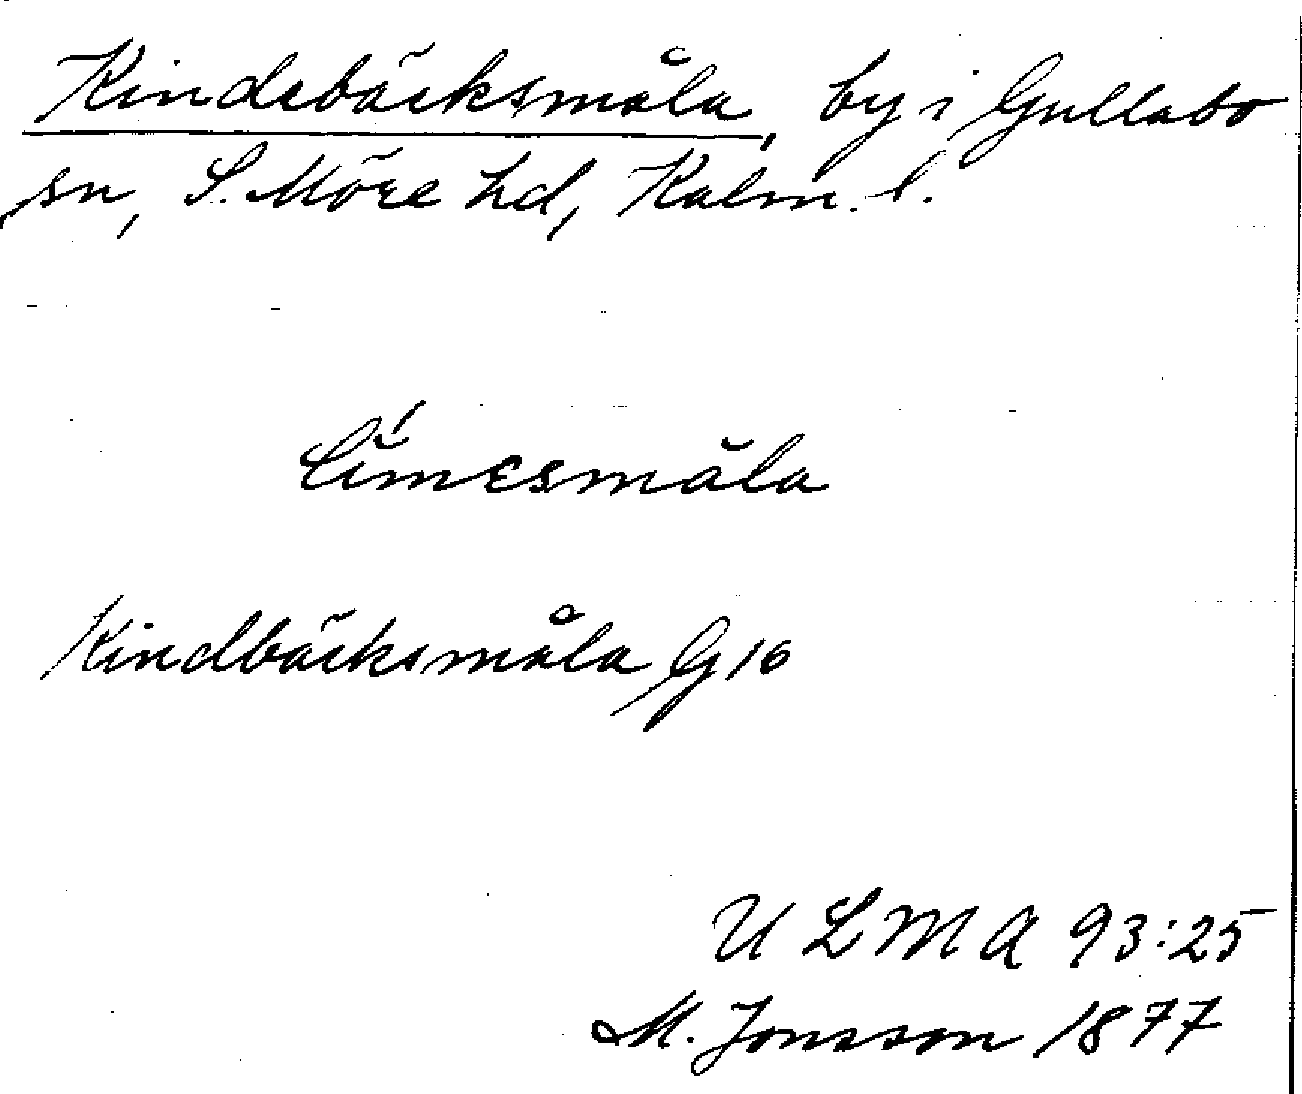 Kindebäcksmåla, by i Gullabo
sn, S. Möre hd, Kalm. l.
Kindbäcksmåla G16
ULMA 93:25
M. Jonsson 1877